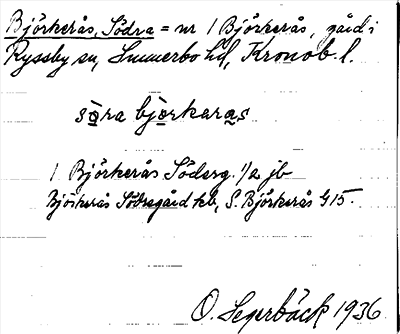 Björkerås, Södra = nr 1 Björkerås, gård i
Ryssby sn, Sunnerbo hd, Kronob. l.
söra björkaras
1 Björkerås Söderg. 1/2 jb
Björkerås Södregård kb, S. Björkerås G 15.
O. Segerbäck 1936